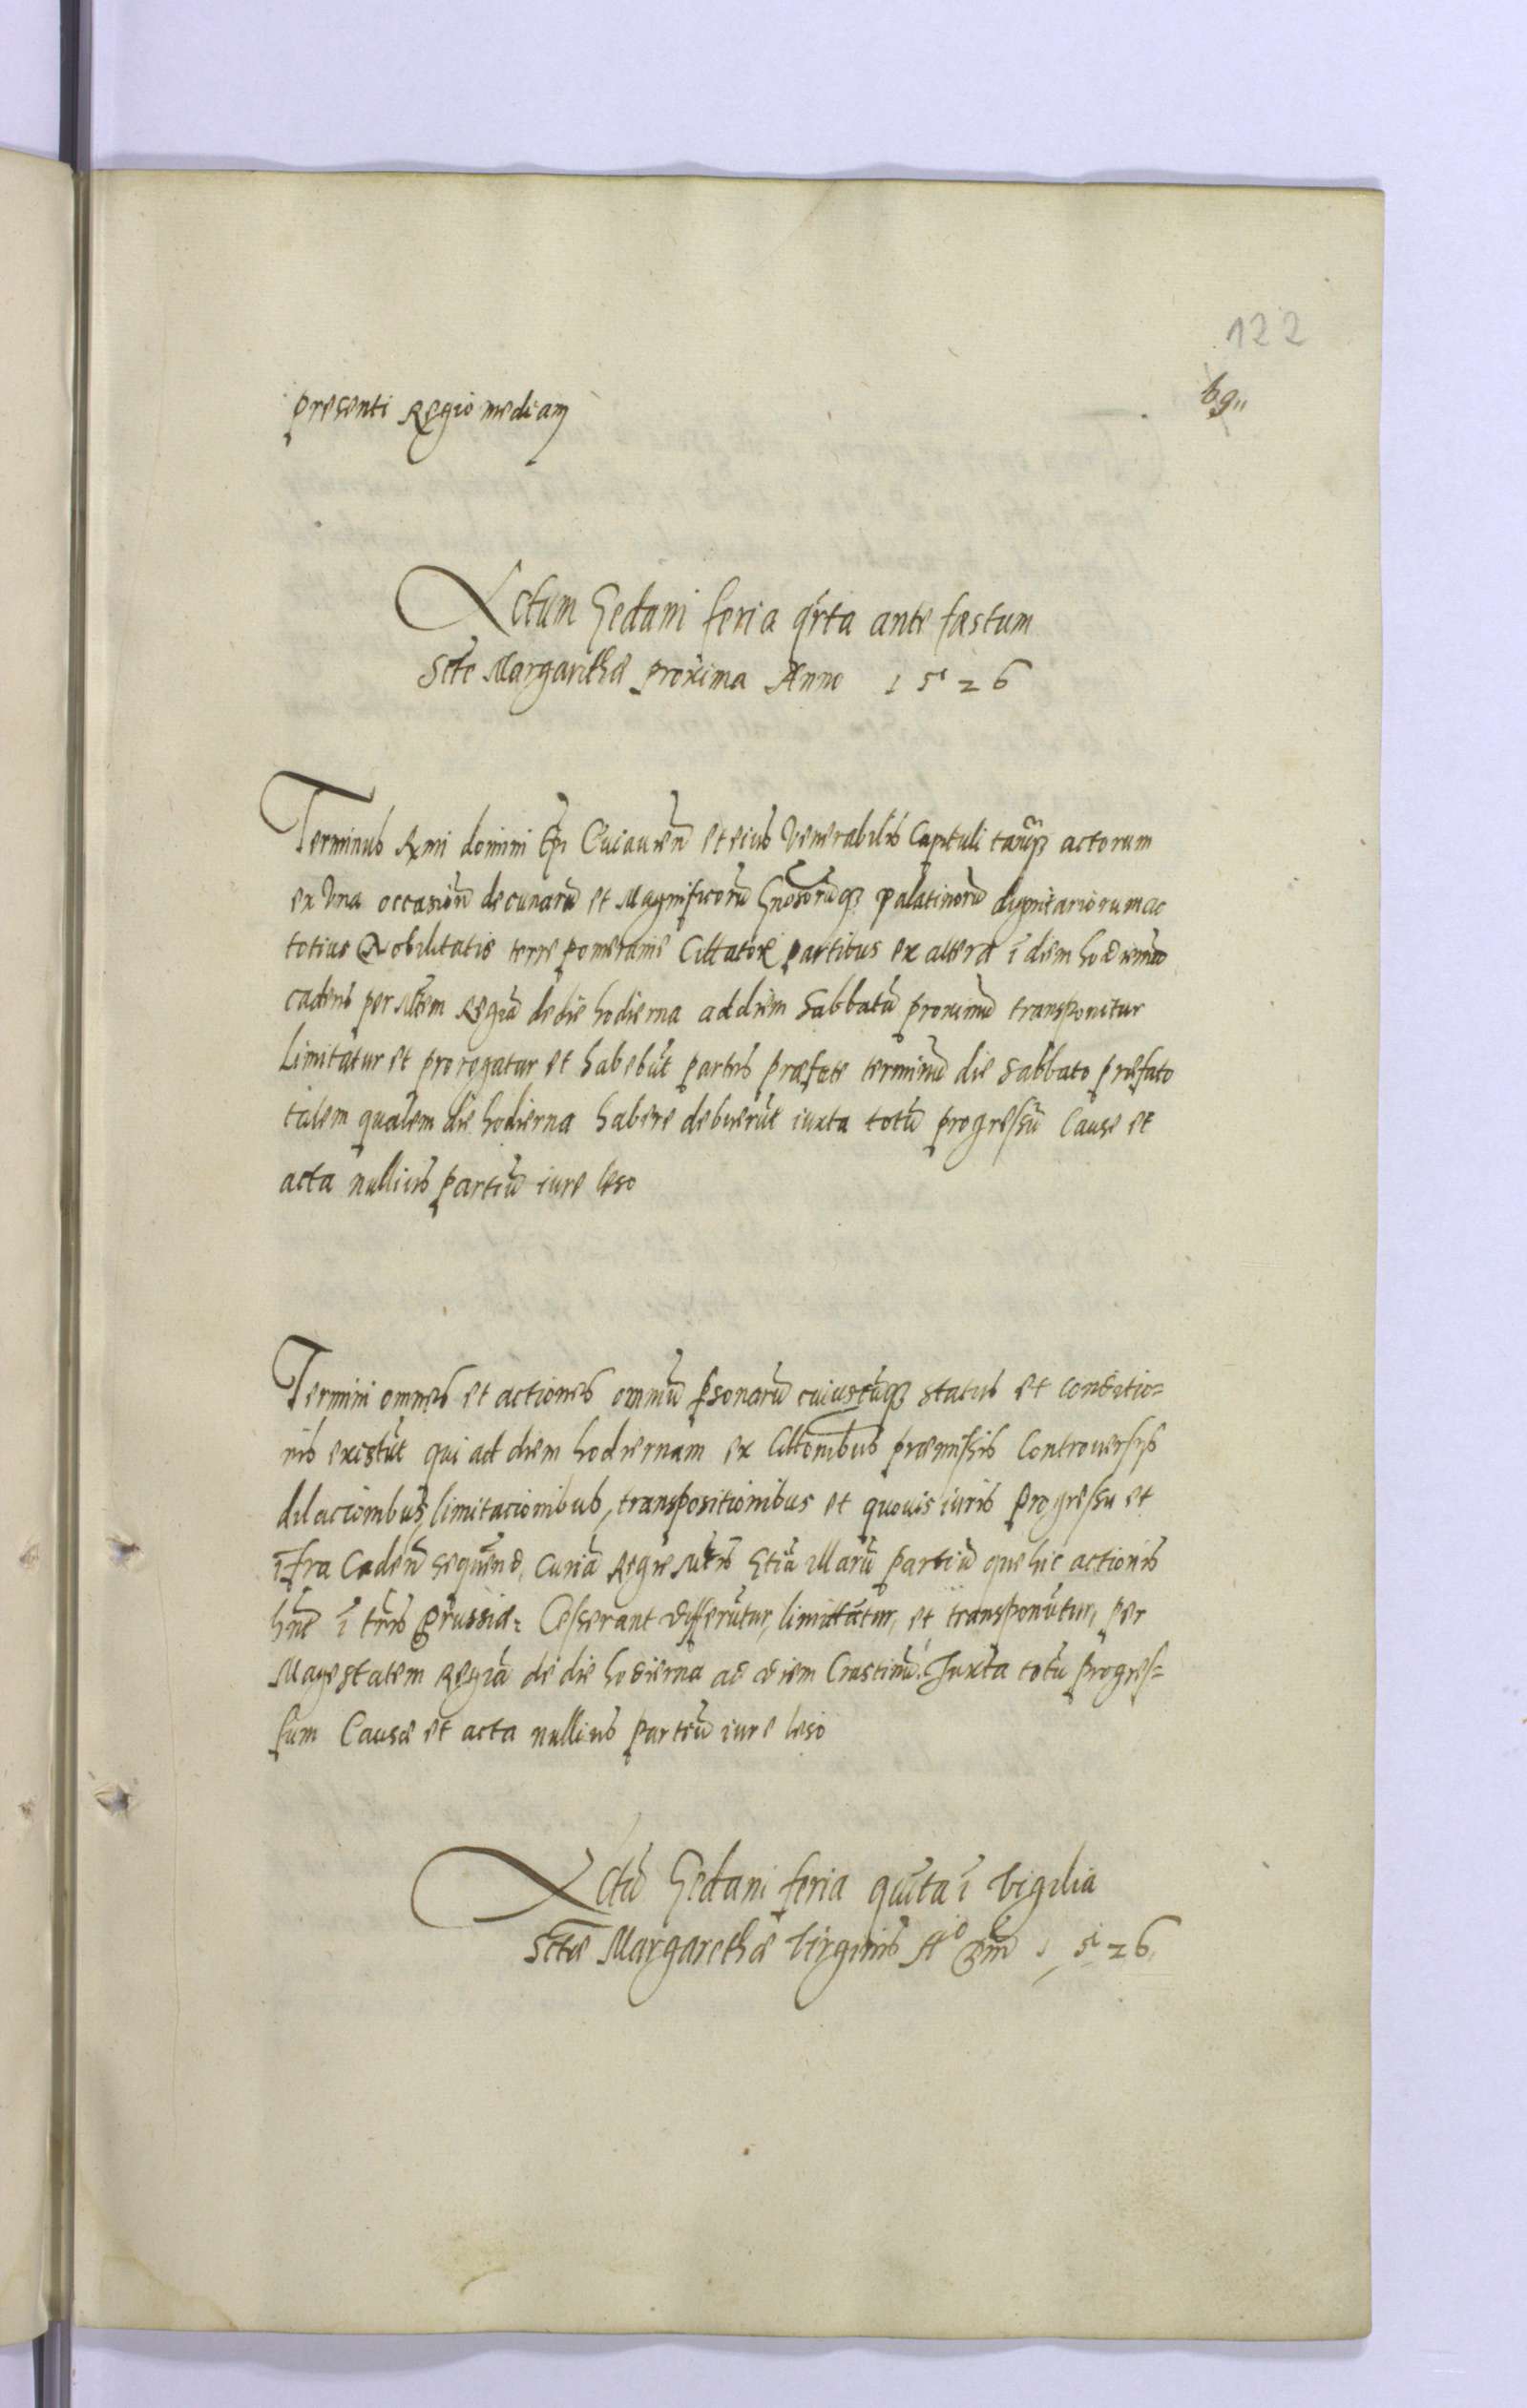 122
69
presenti Regio mediam
Actum Gedani feria qrta ante fæstum
Scte Margarethæ proxima Anno 1526
Terminus Rmi domini Epi Cuiavien et eius Venerabilis Capituli tanqȝ actorum
ex Vna occasioē decimarū et Magnificorū Gnosorūqȝ palatinorū dignitariorum ac
totius Nobilitatis terre pomeranie Cittator partibus ex altera ī diem hodiernū
cadens per Mtem Regiā de die hodierna ad diem Sabbatū proximū transponitur
Limitatur et prorogatur et habebūt partes præfate terminū die Sabbato præfato
talem qualem die hodierna habere debuerūt iuxta totū progressū Cause et
acta nullius partiū iure leso
Termini omnes et actiones omniū psonarū cuiuscūqȝ status et conditio=
nis existūt qui ad diem hodiernam ex Cittonibus præmissis Controversijs
dilacionibus, limitacionibus, transpositionibus et quovis iuris progressu et
īfra Caden sequend, Curiā Regie Mtis Etiā illarū partiū que hic actiones
hnt ī tris Prussiæ: Cesserant differūtur, limittātur, et transponūtur, per
Magestatem Regiā de die hodierna ad diem Crastinū. Juxta totū progres=
sum Causæ et acta nullius partiū iure leso
Actū Gedani feria quīta ī Vigilia
Sctæ Margarethæ Virginis Aº Dni 1526